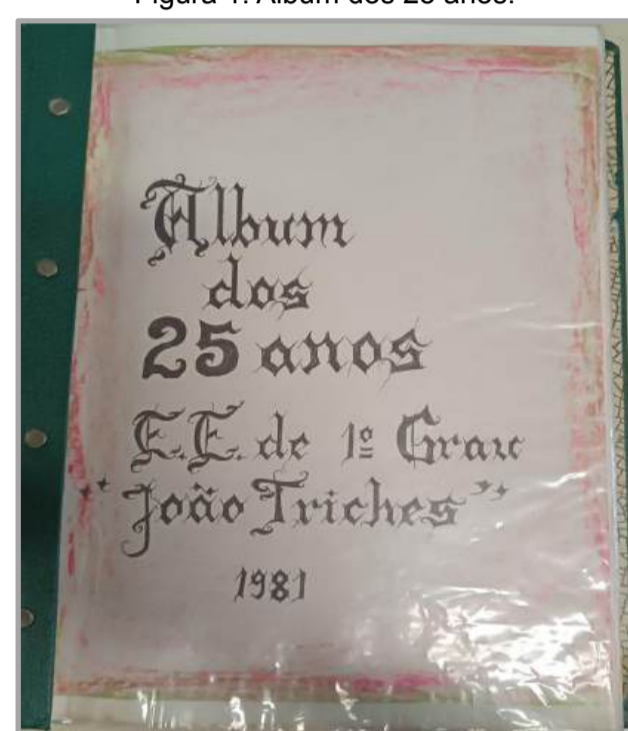 Figura 1. Álbum dos 25 anos.
Album
dos
25 anos
E.E. de 1º Grau
"João Triches"
1981